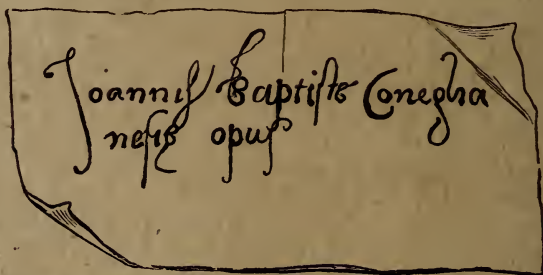 Joannis Baptiste Conegla
nesis opus